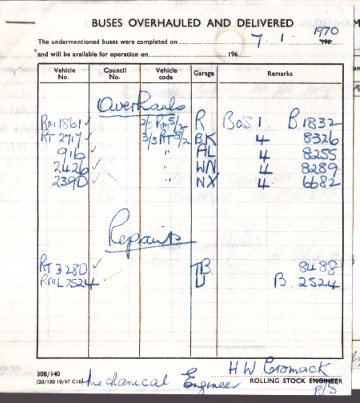 BUSES OVERHAULED AND DELIVERED
The undermentioned buses were completed on 7 1. 1970
and will be available for operation on 196
Vehicle No. Council No. Vehicle code Garage Remarks
Overhauls
RM 1861 ✓ R BOS 1. B.1832
RT 2717 ✓ BK 4 8326
916 ✓ " AL 4 8255
2426 ✓ " WN 4 8289
2390 ✓ " NX 4 6682
Repaints
RT 3280 ✓ TB 8488
RML 2524 U B. 2524
308/140 H W Cromack
Mechanical Engineer ROLLING STOCK ENGINEER
R/S